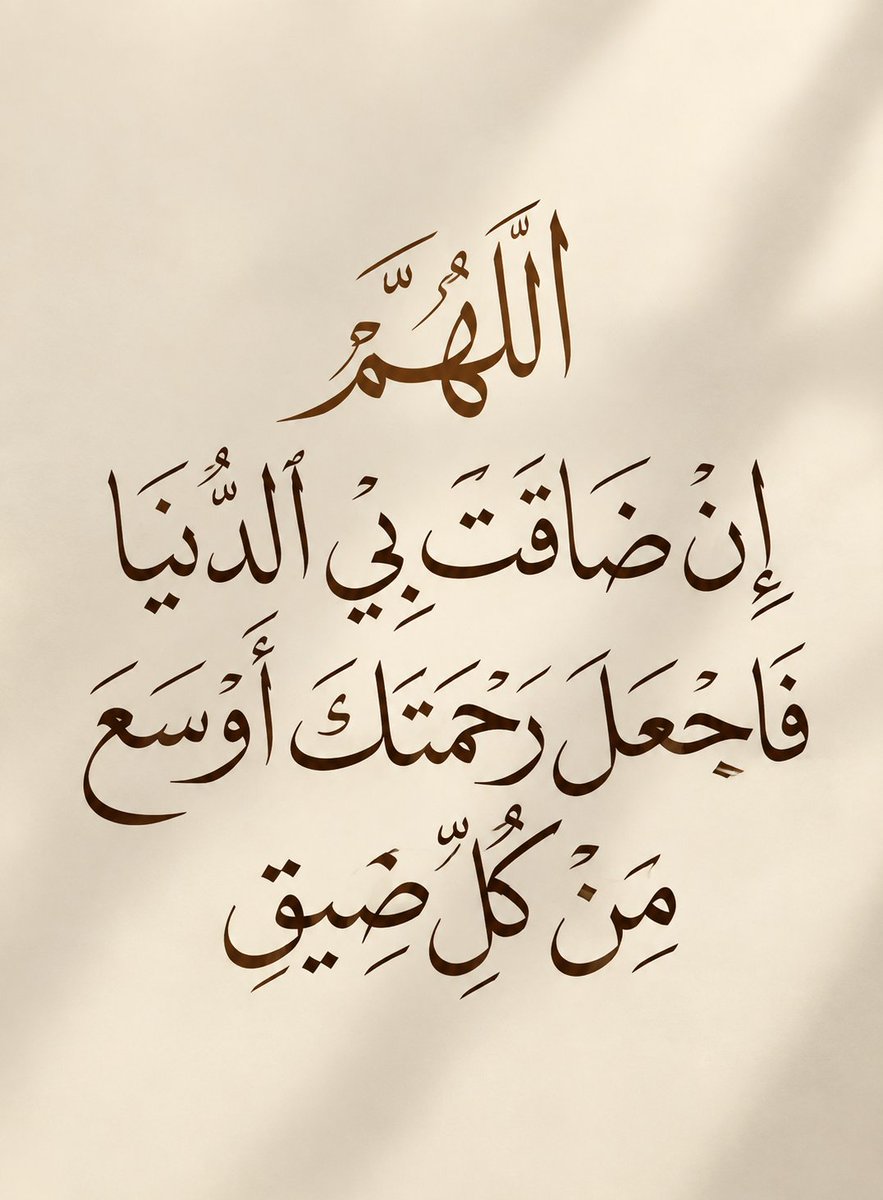 اللَّهُمَّ
إِنْ ضَاقَتَ بِيْ ٱلدُّنيَا
فَاجْعَلَ رَحْمَتَكَ أَوْسَعَ
مِنْ كُلِّ ضِيقِ